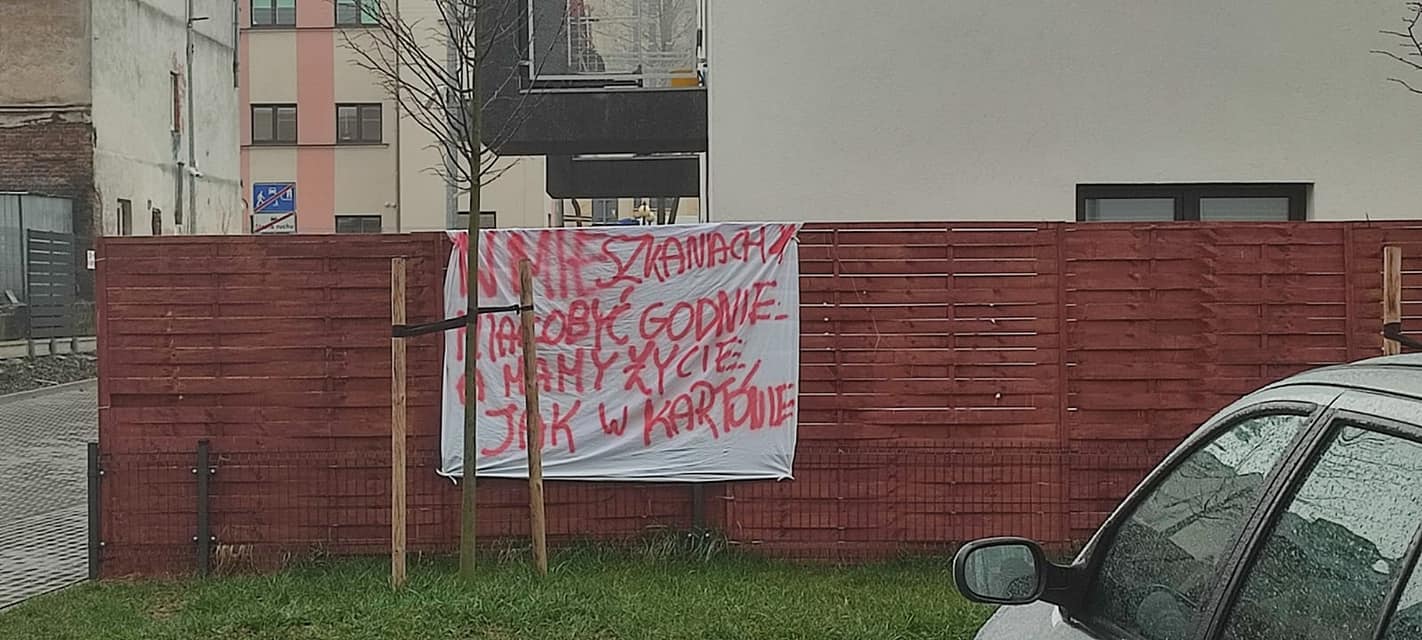 W MIESZKANIACH
MIAŁO BYĆ GODNIE
A MAMY ŻYCIE
JAK W KARTONIE